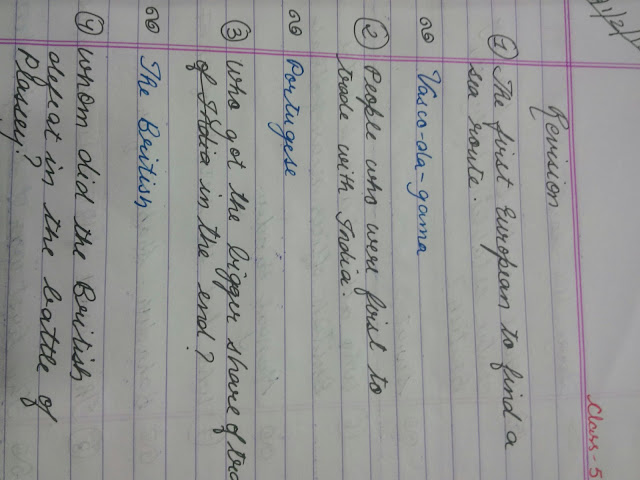 Class - 5
Revision
① The first European to find a
sea route.
Vasco-da-gama
② People who were first to
trade with India.
Portugese
③ who got the bigger share of
of India in the end?
The British
④ whom did the British
defeat in the battle of
Plassey?